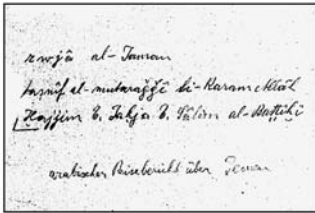 rwjâ al-Jaman
tasnîf al-mutaraǧǧî li-Karam Allâh
Ḥajjim b. Jaḥja b. Sâlim al-Baṭṭiḥî
arabischer Reisebericht über Jemen